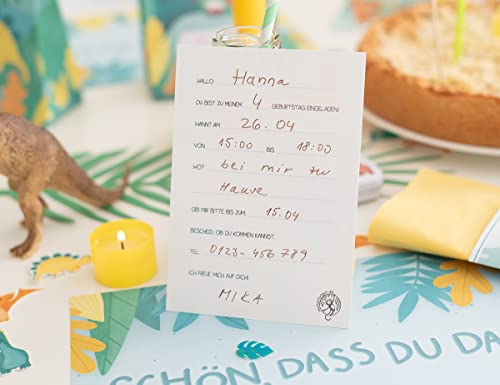 HALLO Hanna
DU BIST ZU MEINEM 4 GEBURTSTAG EINGELADEN:
WANN? AM 26.04
VON 15:00 BIS 18:00
WO? bei mir zu
Hause
GIB MIR BITTE BIS ZUM 15.04
BESCHEID, OB DU KOMMEN KANNST.
TEL: 0123-456 789
ICH FREUE MICH AUF DICH!
MIKA
SCHÖN, DASS DU DA